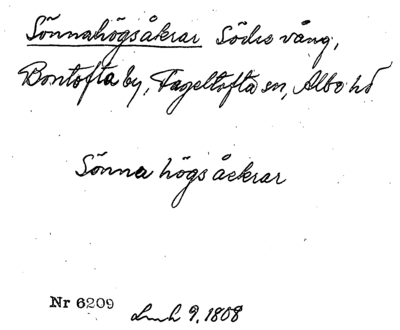 Sönnahögsåkrar Södre vång,
Bontofta by, Fågeltofta sn, Albo hd
Sönna högs åckrar
Nr 6209 Lmh 9. 1808